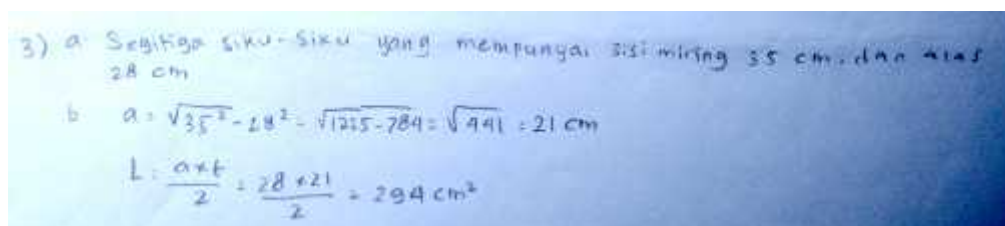 3) a Segitiga siku-siku yang mempunyai sisi miring 35 cm. dan alas
28 cm
b a = √35² - 28² = √1225-784 = √441 = 21 cm
L = a×t/2 = 28×21/2 = 294 cm²